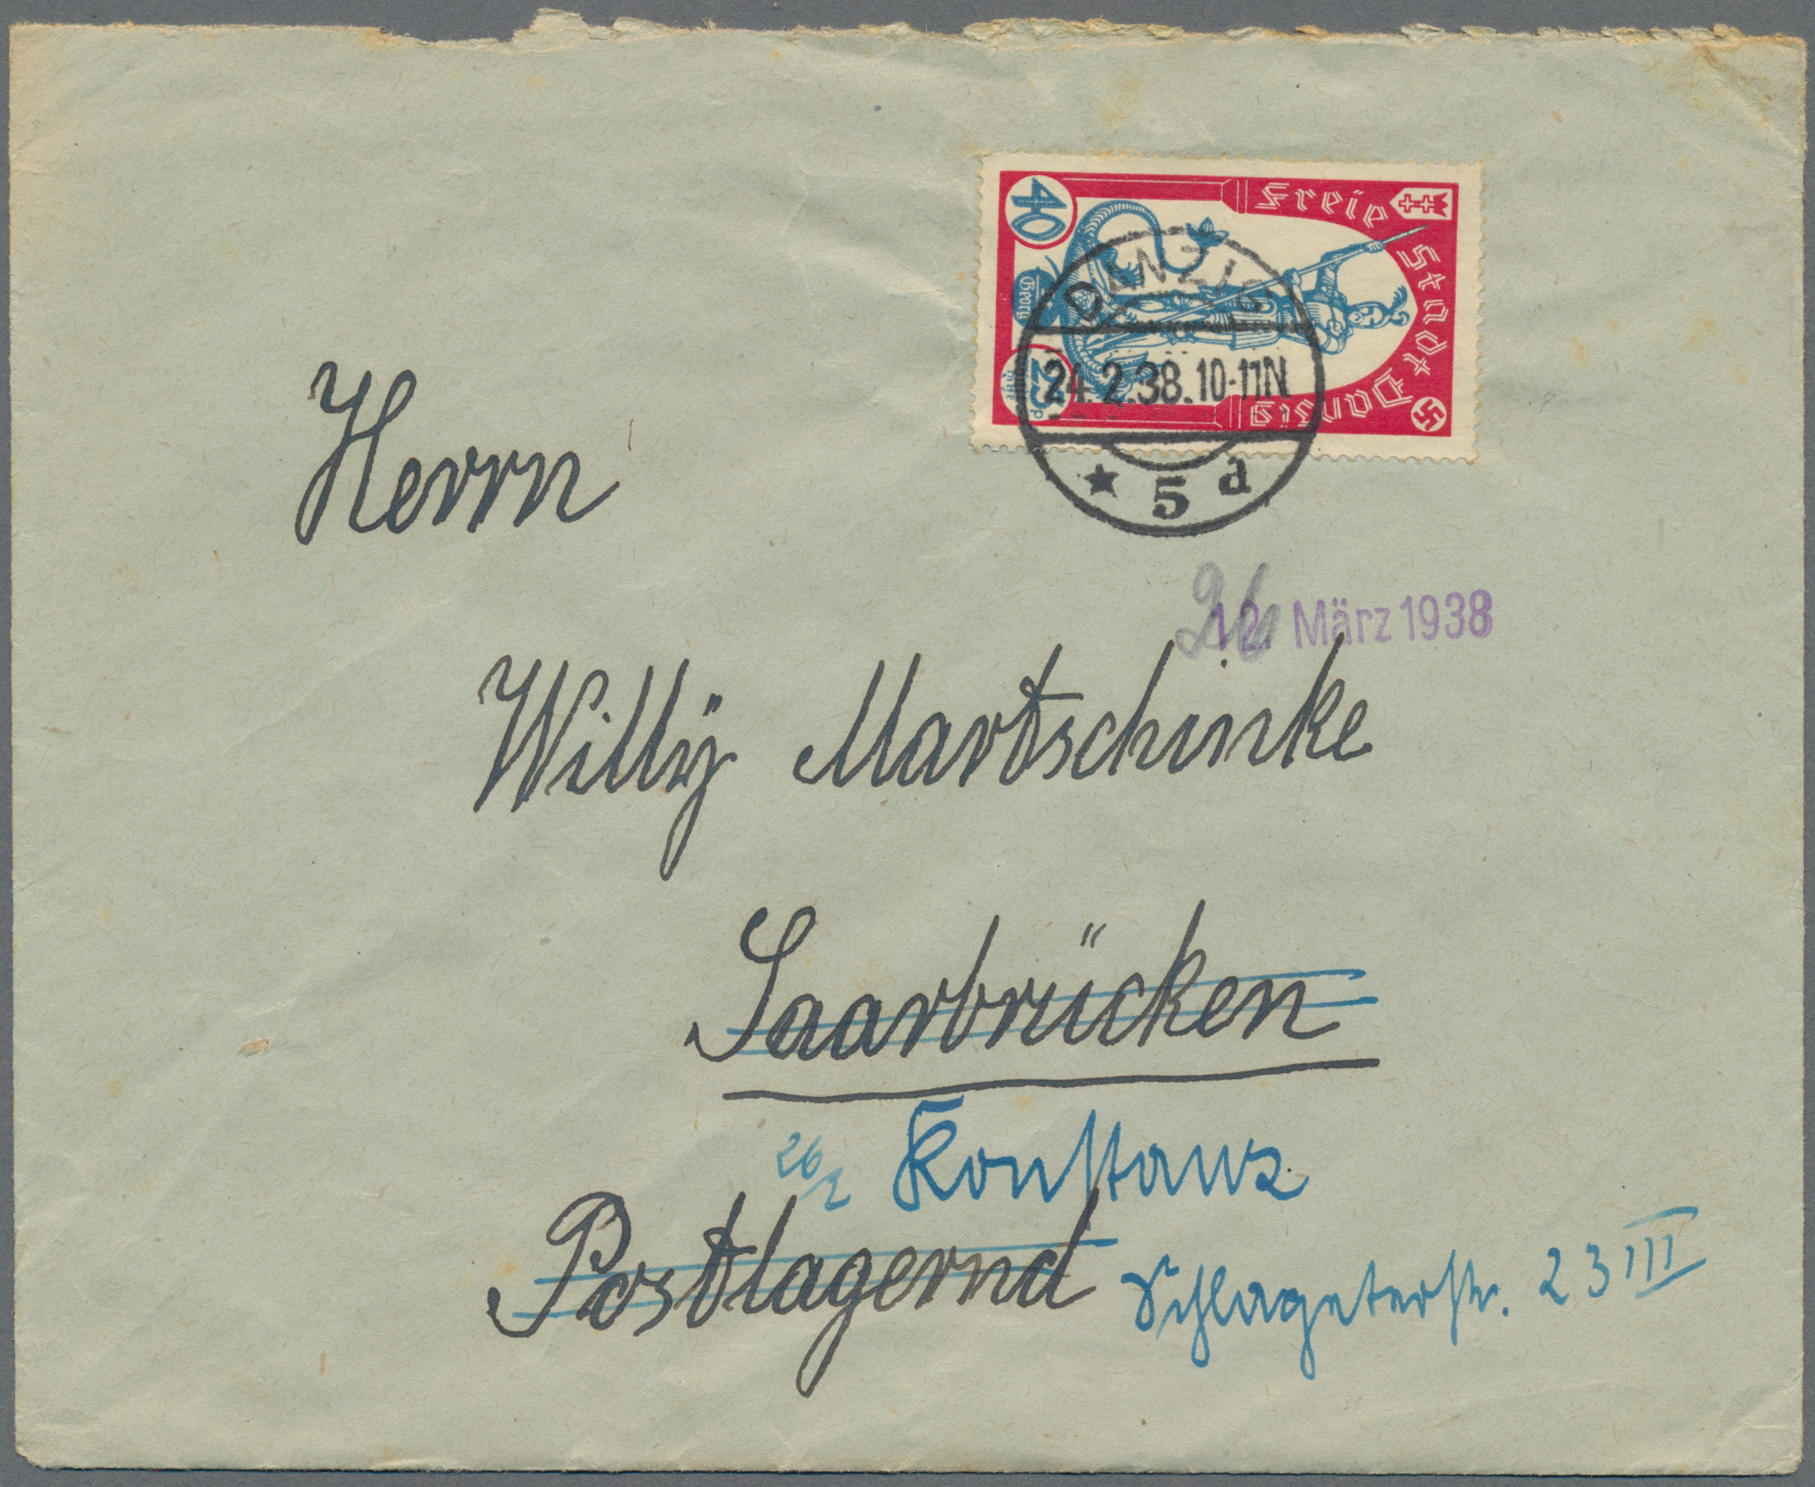 40
Freie Stadt Danzig
Georg
25
DANZIG
24.2.38.10-11N
★ 5 d
Herrn
26
12. März 1938
Willÿ Martschinke
Saarbrücken
26/2 Konstanz
Postlagernd Schlageterstr. 23 III